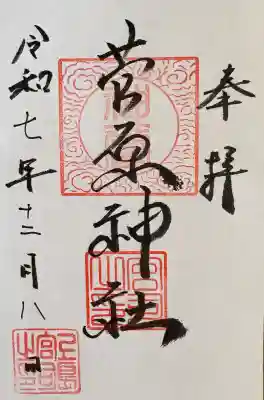 奉拝
菅原神社
令和七年十二月八日